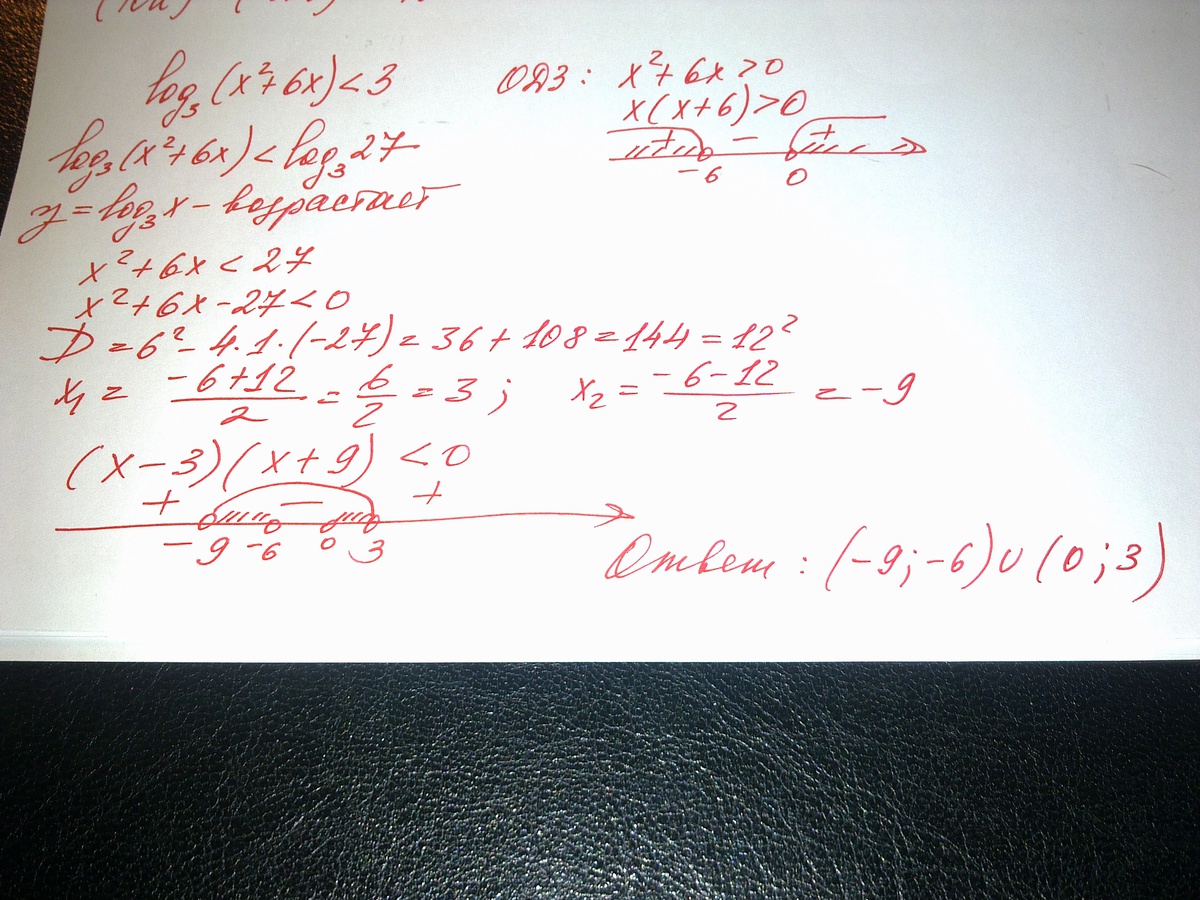 log₃(x²+6x)<3 ОДЗ: x²+6x>0
x(x+6)>0
log₃(x²+6x)<log₃27
+ − +
-6 0
y=log₃x - возрастает
x²+6x<27
x²+6x-27<0
D=6²-4·1·(-27)=36+108=144=12²
x₁=(-6+12)/2=6/2=3; x₂=(-6-12)/2=-9
(x-3)(x+9)<0
+ − +
-9 -6 0 3
Ответ: (-9;-6)∪(0;3)